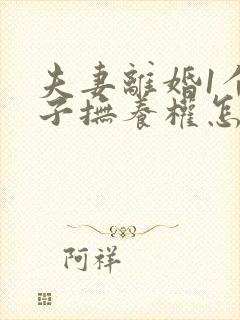 夫妻離婚1個
子撫養權怎
阿祥